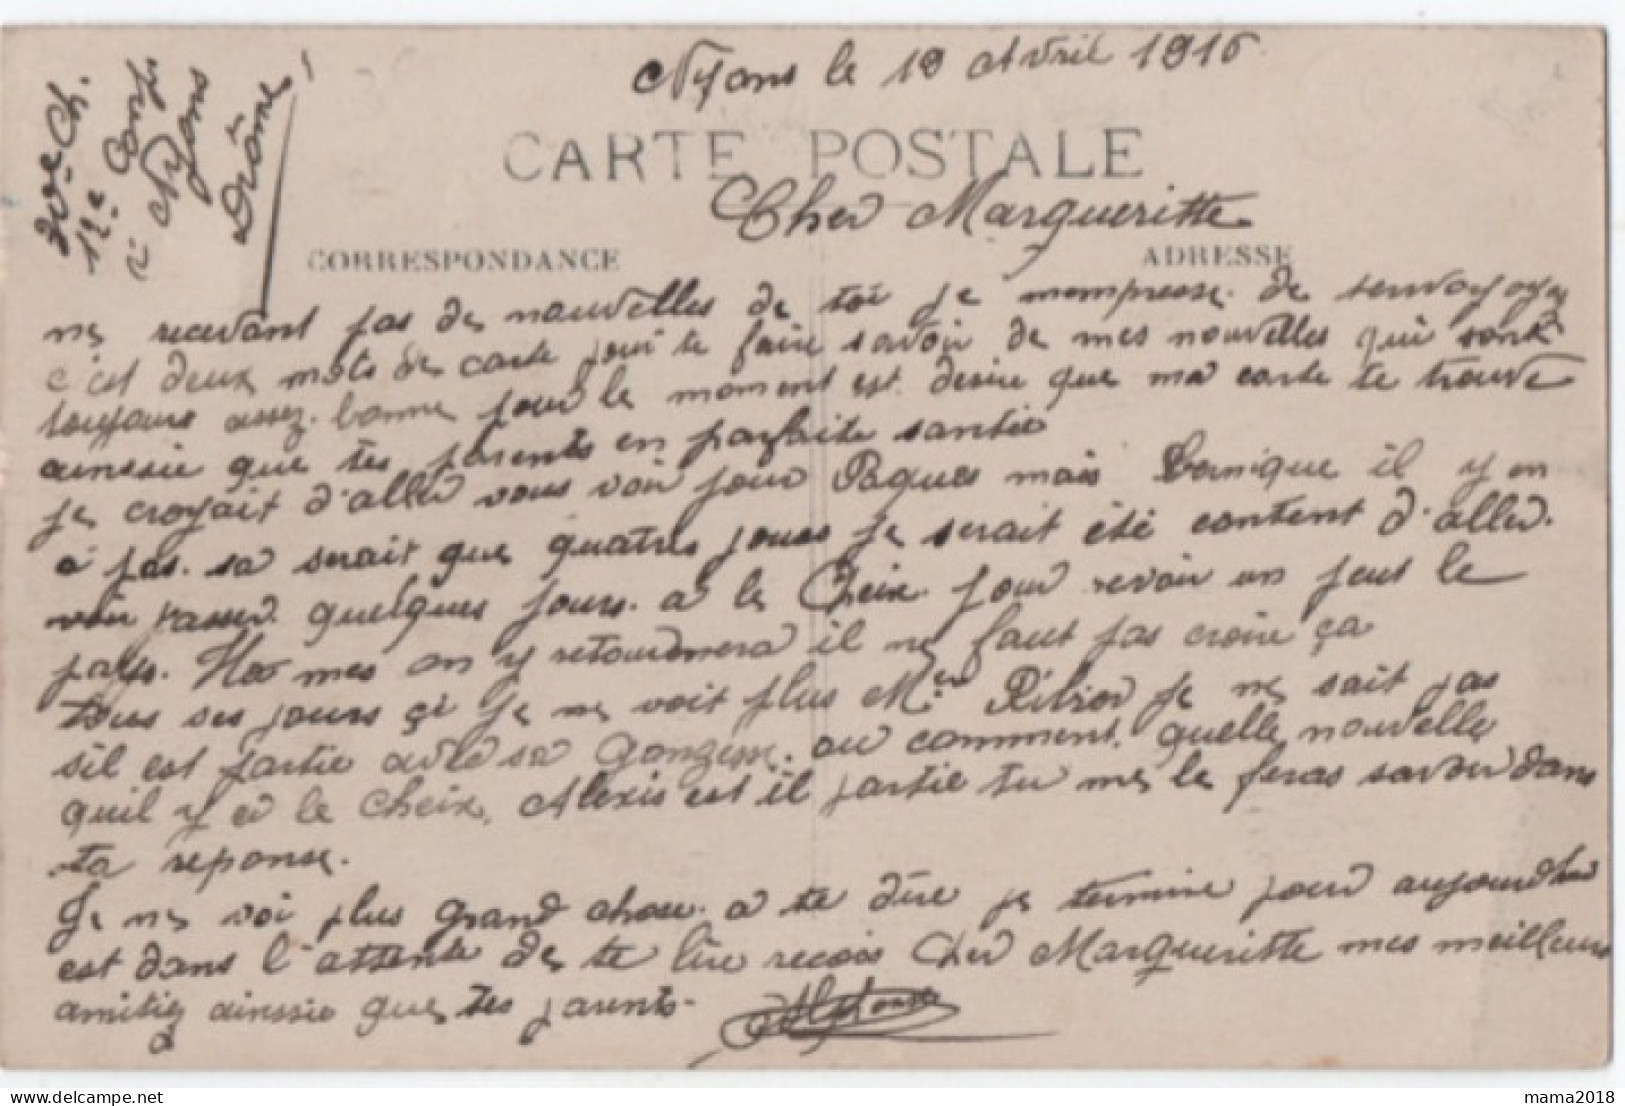 Nyons le 19 Avril 1916
Ch.
12e Comp.
à Nyons
Drôme
CARTE POSTALE
Cher Margueritte
CORRESPONDANCE
ADRESSE
ne recevant pas de nouvelles de toi je mempresse de
c'est deux mots de carte pour te faire savoir de mes nouvelles qui sont
toujours assez bonne pour le moment est desire que ma carte te trouve
ainssie que tes parents en parfaite santée
je croyait d'aller vous voir pour Paques mais bernique il y en
a pas. sa serait que quatres jours je serait été content d'aller
voir passer quelques jours a le Cheix pour revoir un peut le
pays. mes on y retournera il ne faut pas croire ça
tous ses jours çi je ne voit plus Mr je ne sait pas
sil est partie avec sa gonzesse ou comment. quelle nouvelle
quil y a le Cheix, Alexis est il partie tu me le feras savoir dans
ta reponse.
Je ne voi plus grand chose a te dire je termine pour aujourdhui
est dans l'attente de te lire recois Cher Margueritte mes meilleurs
amitiez ainssie que tes parents.
Alphonse
delcampe.net
mama2018